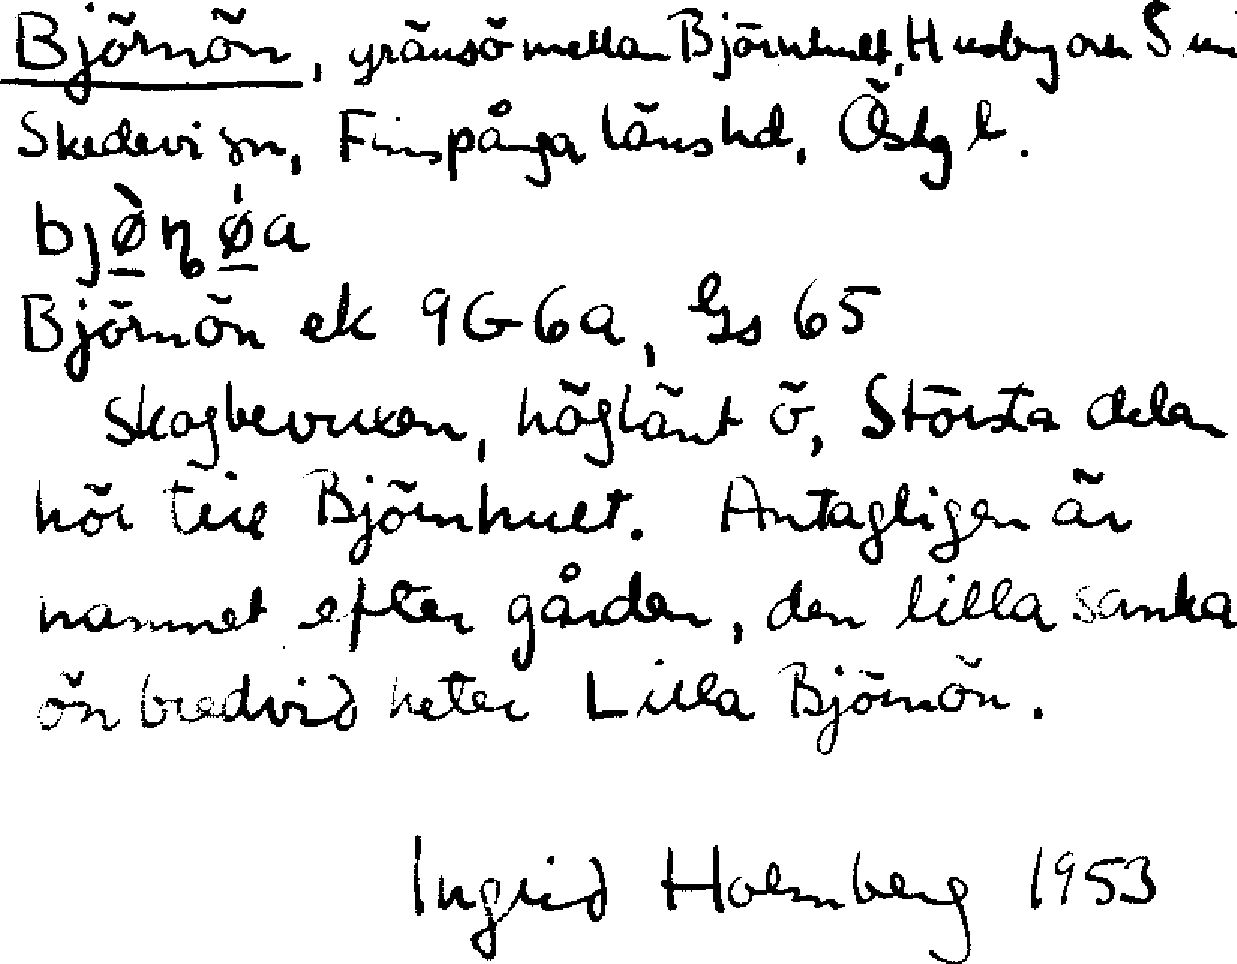 Björnön, gränsö mellan Björnhult, Husby och S
Skedevi sn, Finspånga länshd, Östg l.
bjø̀ṇǿa
Björnön ek 9G6a, Gs 65
Skogbevuxen, höglänt ö, Största delen
hör till Björnhult. Antagligen är
namnet efter gården, den lilla sanka
ön bredvid heter Lilla Björnön.
Ingrid Holmberg 1953